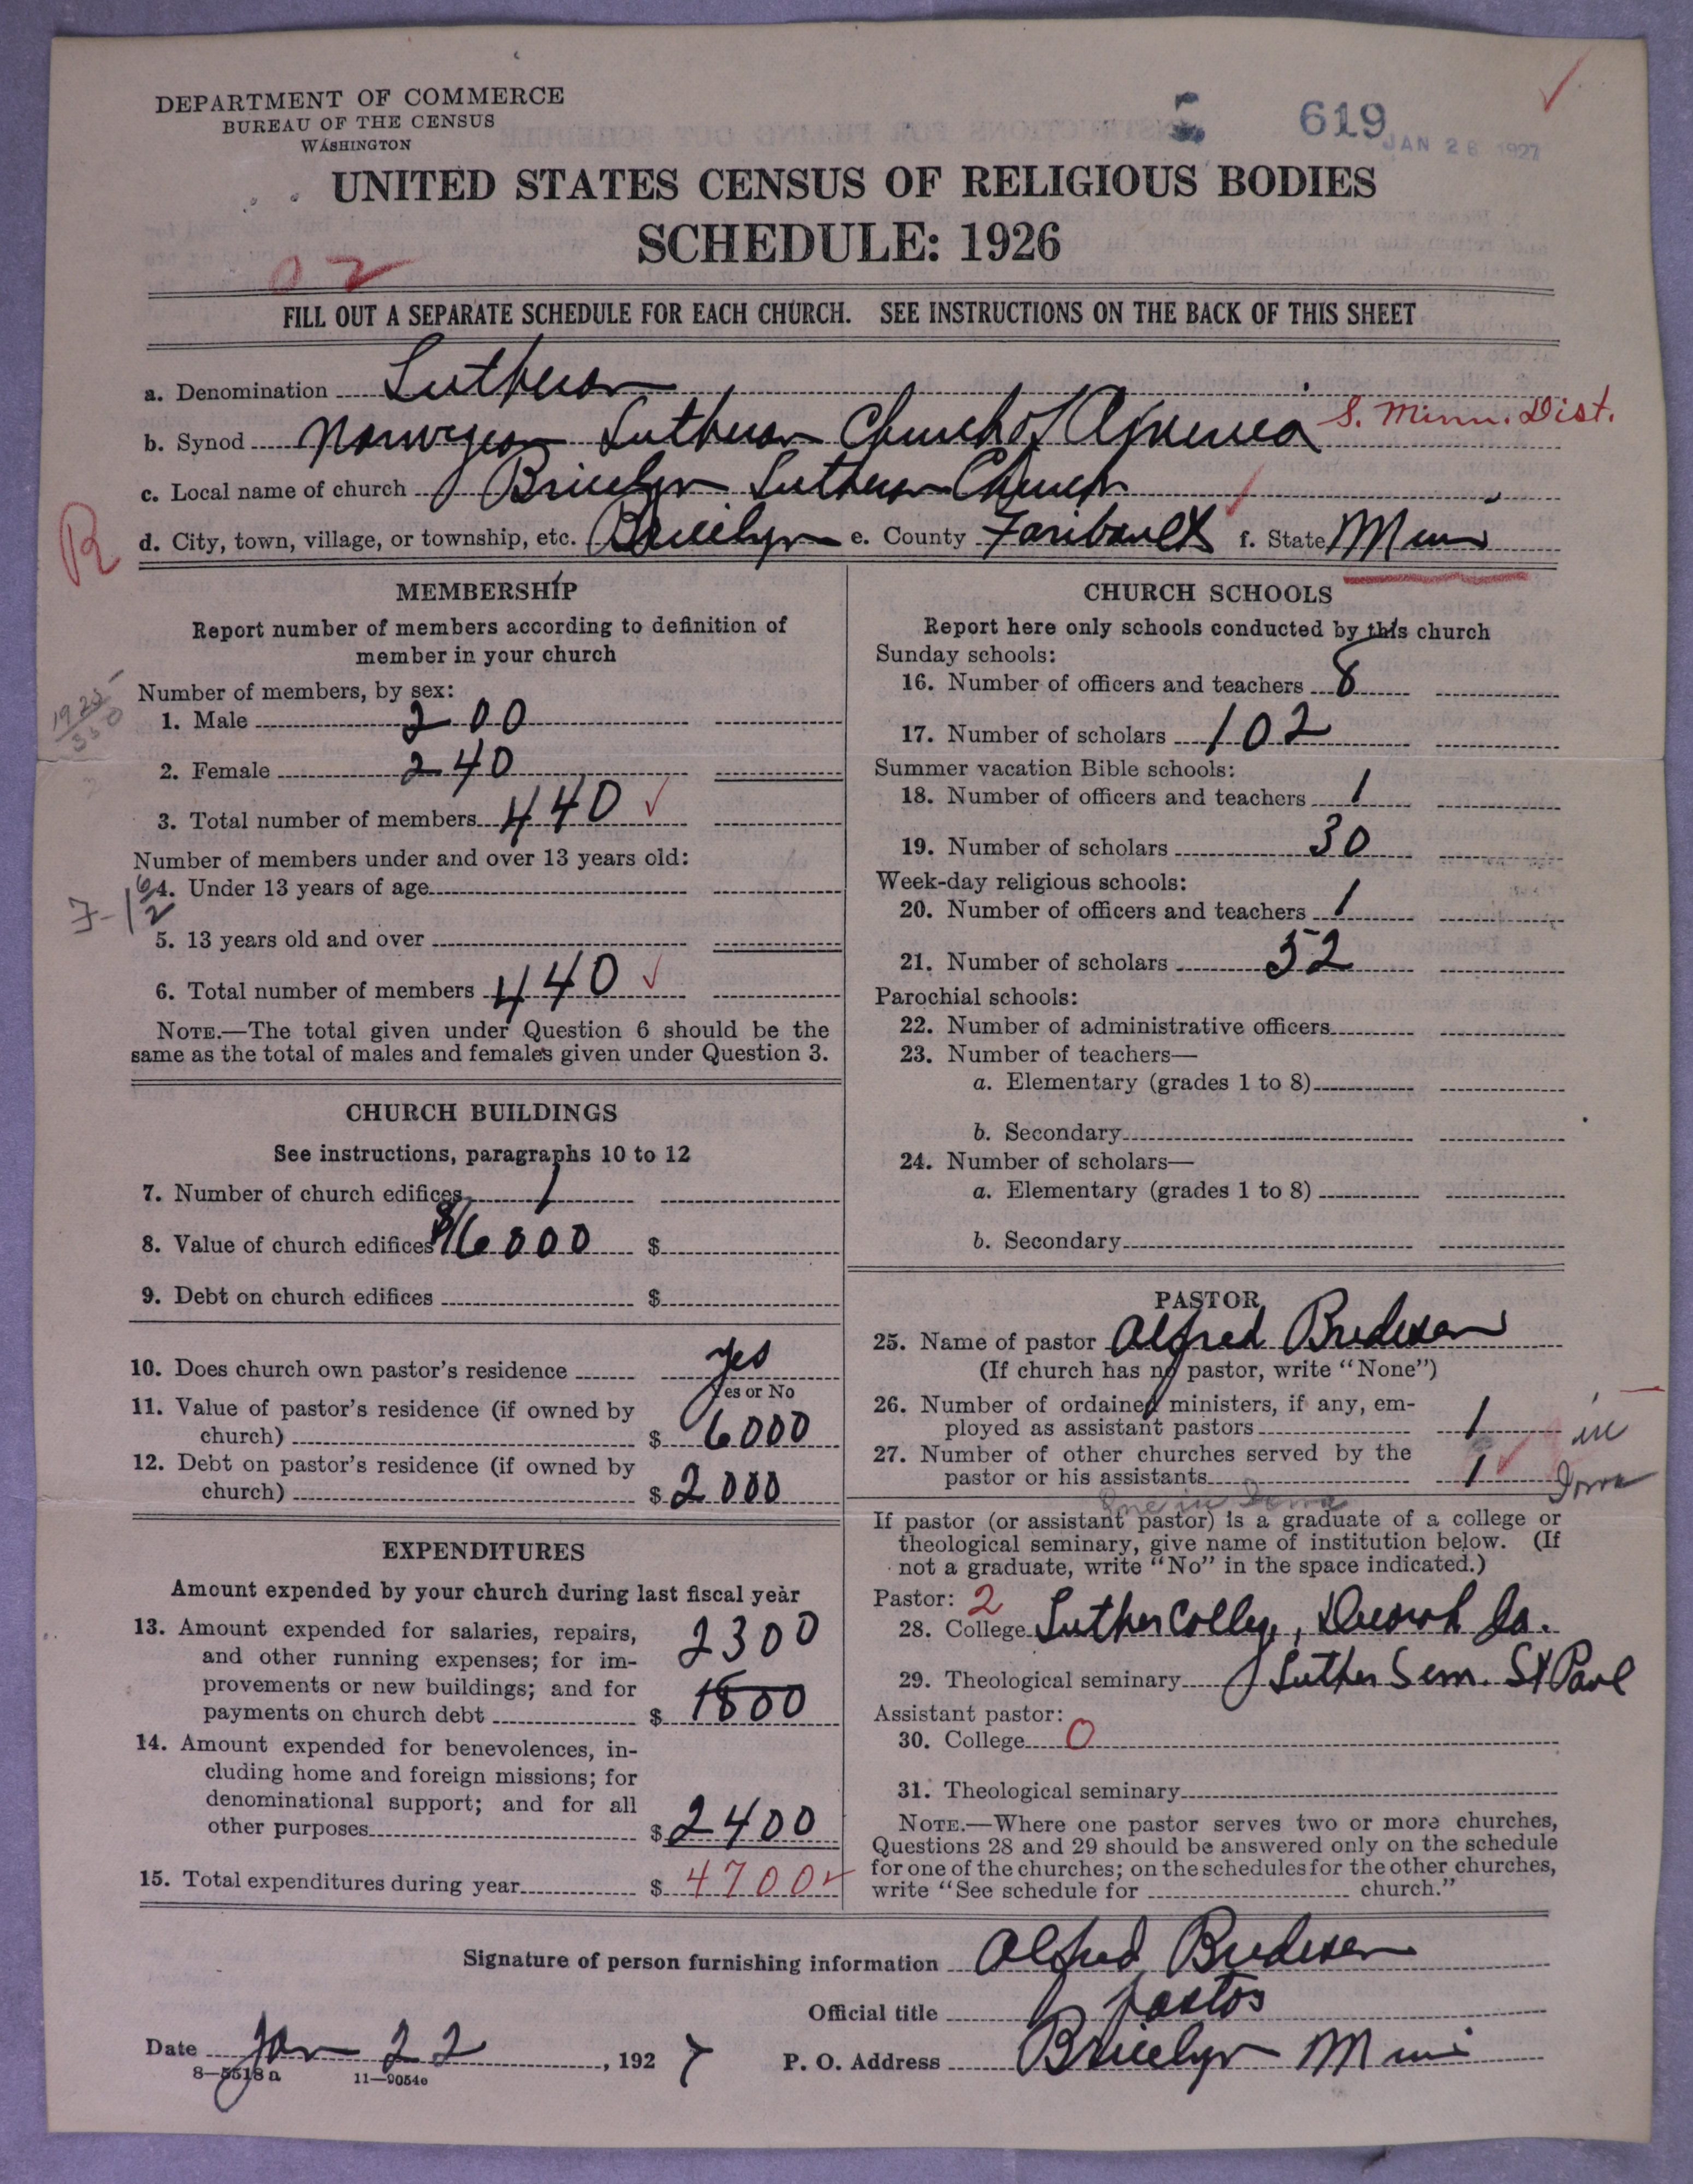 DEPARTMENT OF COMMERCE
BUREAU OF THE CENSUS
WASHINGTON
619
JAN 26 1927
UNITED STATES CENSUS OF RELIGIOUS BODIES
SCHEDULE: 1926
02
FILL OUT A SEPARATE SCHEDULE FOR EACH CHURCH. SEE INSTRUCTIONS ON THE BACK OF THIS SHEET
a. Denomination Lutheran
b. Synod Norwegian Lutheran Church of America S. Minn. Dist.
c. Local name of church Bricelyn Lutheran Church
R
d. City, town, village, or township, etc. Bricelyn e. County Faribault f. State Minn
MEMBERSHIP
Report number of members according to definition of
member in your church
Number of members, by sex:
1. Male 200
2. Female 240
3. Total number of members 440
Number of members under and over 13 years old:
4. Under 13 years of age
5. 13 years old and over
6. Total number of members 440
NOTE.—The total given under Question 6 should be the
same as the total of males and females given under Question 3.
CHURCH BUILDINGS
See instructions, paragraphs 10 to 12
7. Number of church edifices 1
8. Value of church edifices $16000 $
9. Debt on church edifices $
10. Does church own pastor's residence yes
Yes or No
11. Value of pastor's residence (if owned by
church) $ 6000
12. Debt on pastor's residence (if owned by
church) $ 2000
EXPENDITURES
Amount expended by your church during last fiscal year
13. Amount expended for salaries, repairs, 2300
and other running expenses; for im-
provements or new buildings; and for
payments on church debt $ 1800
14. Amount expended for benevolences, in-
cluding home and foreign missions; for
denominational support; and for all
other purposes $ 2400
15. Total expenditures during year $ 4700
CHURCH SCHOOLS
Report here only schools conducted by this church
Sunday schools:
16. Number of officers and teachers 8
17. Number of scholars 102
Summer vacation Bible schools:
18. Number of officers and teachers 1
19. Number of scholars 30
Week-day religious schools:
20. Number of officers and teachers 1
21. Number of scholars 52
Parochial schools:
22. Number of administrative officers
23. Number of teachers—
a. Elementary (grades 1 to 8)
b. Secondary
24. Number of scholars—
a. Elementary (grades 1 to 8)
b. Secondary
PASTOR
25. Name of pastor Alfred Bredesen
(If church has no pastor, write "None")
26. Number of ordained ministers, if any, em-
ployed as assistant pastors 1 in
27. Number of other churches served by the
pastor or his assistants 1 Iowa
One in Iowa
If pastor (or assistant pastor) is a graduate of a college or
theological seminary, give name of institution below. (If
not a graduate, write "No" in the space indicated.)
Pastor: 2
28. College Luther College, Decorah Ia.
29. Theological seminary Luther Sem. St Paul
Assistant pastor:
30. College 0
31. Theological seminary
NOTE.—Where one pastor serves two or more churches,
Questions 28 and 29 should be answered only on the schedule
for one of the churches; on the schedules for the other churches,
write "See schedule for church."
Signature of person furnishing information Alfred Bredesen
Official title Pastor
Date Jan 22, 1927 P. O. Address Bricelyn Minn
8—5518a 11—9054c